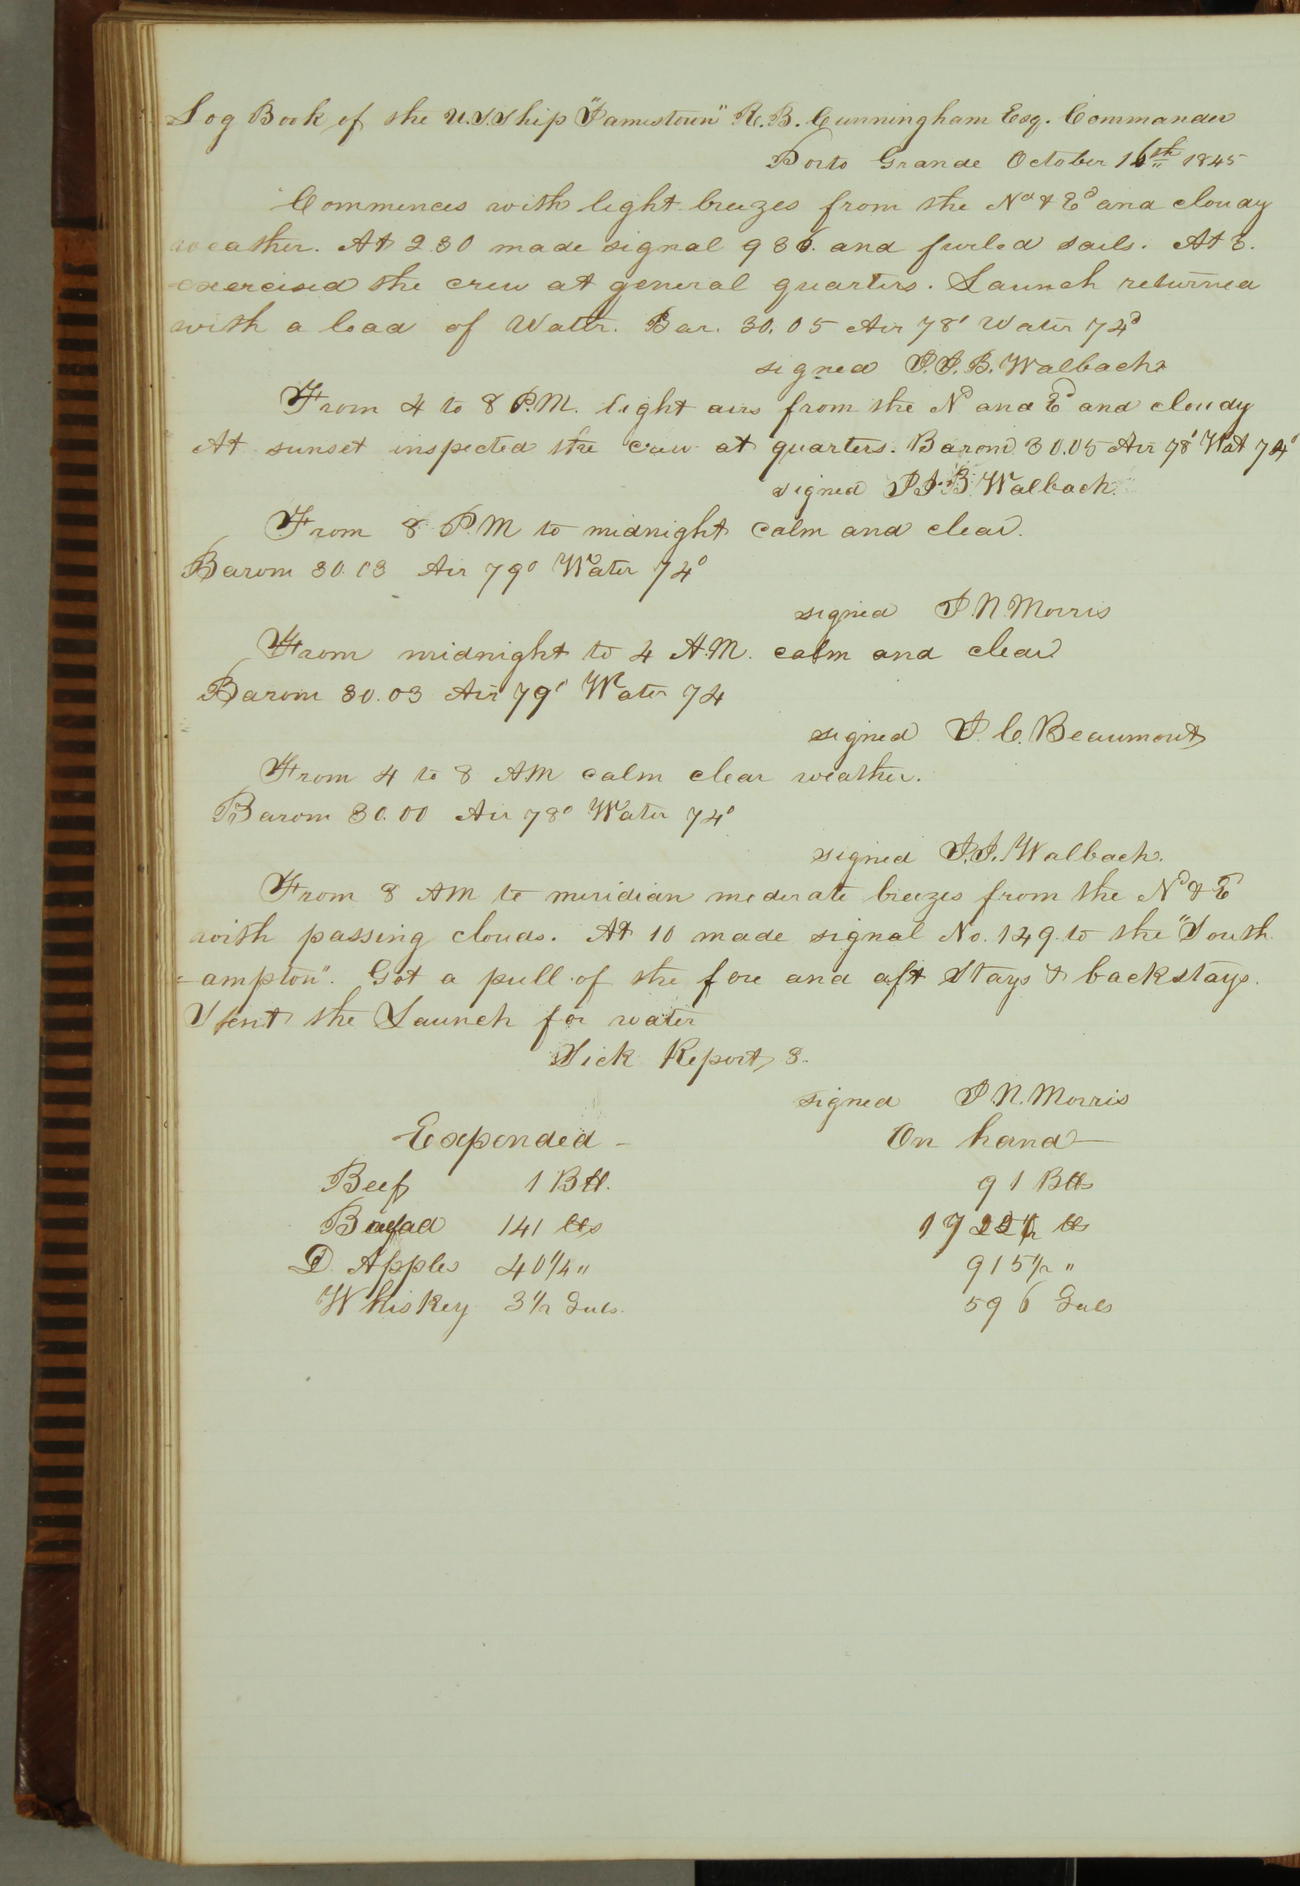 Log Book of the U.S. Ship "Jamestown" R. B. Cunningham Esq. Commander
Porto Grande October 16th 1845
Commences with light breezes from the Nd & Ed and cloudy
weather. At 2.30 made signal 936. and furled sails. At 3.
exercised the crew at general quarters. Launch returned
with a load of Water. Bar. 30.05 Air 78° Water 74°
signed J.J.B. Walbach
From 4 to 8 P.M. light airs from the Nd and Ed and cloudy
At sunset inspected the crew at quarters. Barom 30.05 Air 78° Wat 74°
signed J.J.B. Walbach.
From 8 P.M to midnight calm and clear.
Barom 30.03 Air 79° Water 74°
signed J.N. Morris
From midnight to 4 A.M. calm and clear
Barom 30.03 Air 79° Water 74
signed J. C. Beaumont
From 4 to 8 AM calm clear weather.
Barom 30.00 Air 78° Water 74°
signed J.J. Walbach.
From 8 AM to meridian moderate breezes from the Nd & E
with passing clouds. At 10 made signal No. 149. to the "South
=ampton". Got a pull of the fore and aft stays & backstays.
Sent the Launch for water
Sick Report 3.
signed J.N. Morris
Expended - On hand -
Beef 1 Bll. 91 Blls
Bread 141 lbs lbs
D. Apples 40 1/4 " 915 1/2 "
Whiskey 3 1/2 Gals. 596 Gals